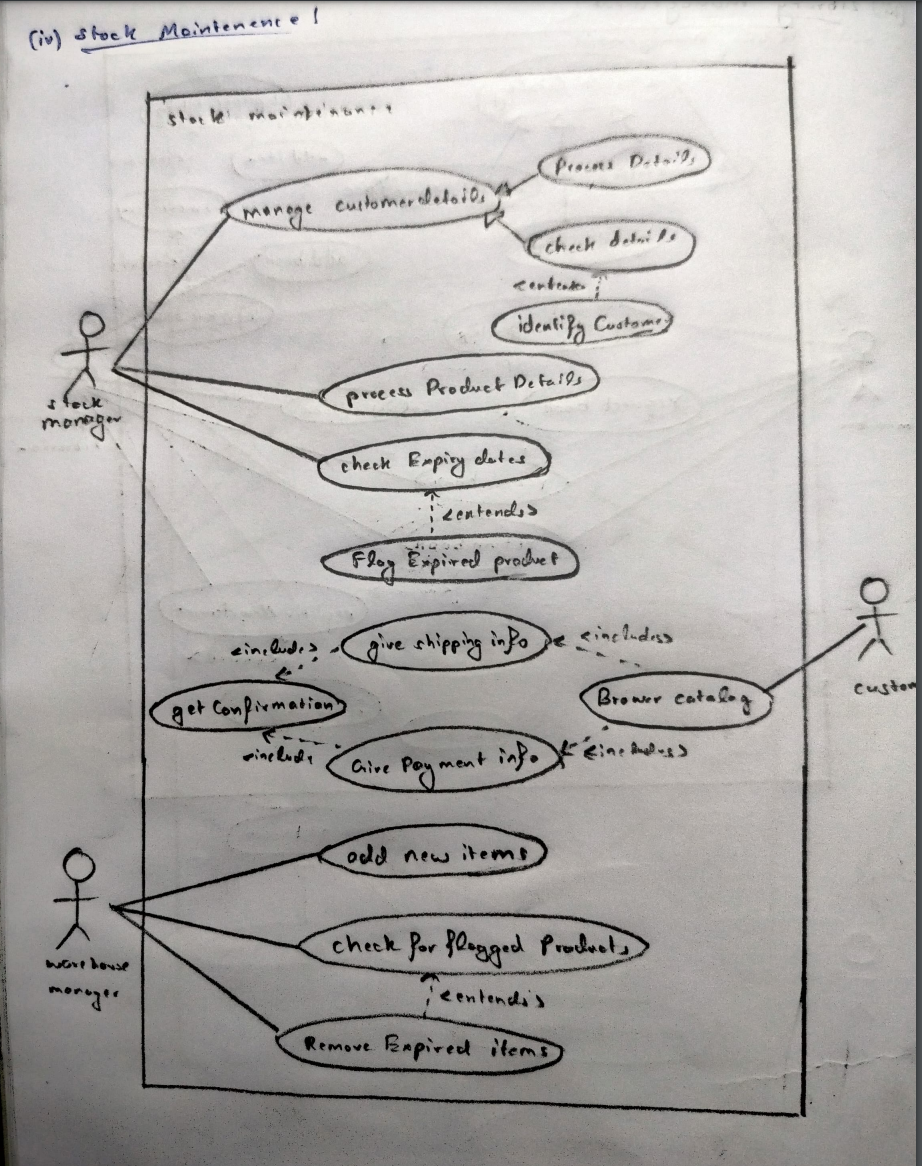 (iv) Stock Maintenence !
stock maintenance
Process Details
manage customerdetails
check details
<extends
identify Customer
process Product Details
stock
manager
check Expiry dates
<extends>
Flag Expired product
<includes>
give shipping info
<includes>
get Confirmation
Brower catalog
custom
<include
Give Payment info
<includes>
add new items
check for flagged Products
warehouse
manager
<extends>
Remove Expired items